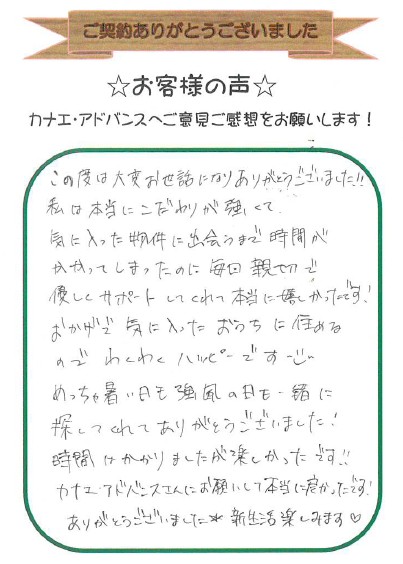 ご契約ありがとうございました
☆お客様の声☆
カナエ・アドバンスへご意見ご感想をお願いします！
この度は大変お世話になりありがとうございました!!
私は本当にこだわりが強くて、
気に入った物件に出会うまで時間が
かかってしまったのに毎回親切で
優しくサポートしてくれて本当に嬉しかったです!
おかげで気に入ったおうちに住める
のでわくわくハッピーです
めっちゃ暑い日も強風の日も一緒に
探してくれてありがとうございました!
時間はかかりましたが楽しかったです!!
カナエ・アドバンスさんにお願いして本当に良かったです!
ありがとうございました* 新生活楽しみます♡